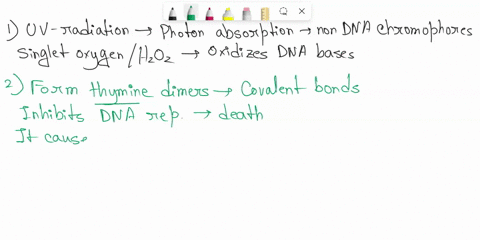 1) UV-radiation → Photon absorption → non DNA chromophores
Singlet oxygen / H2O2 → Oxidizes DNA bases
2) Form thymine dimers → Covalent bonds
Inhibits DNA rep. → death
It cause